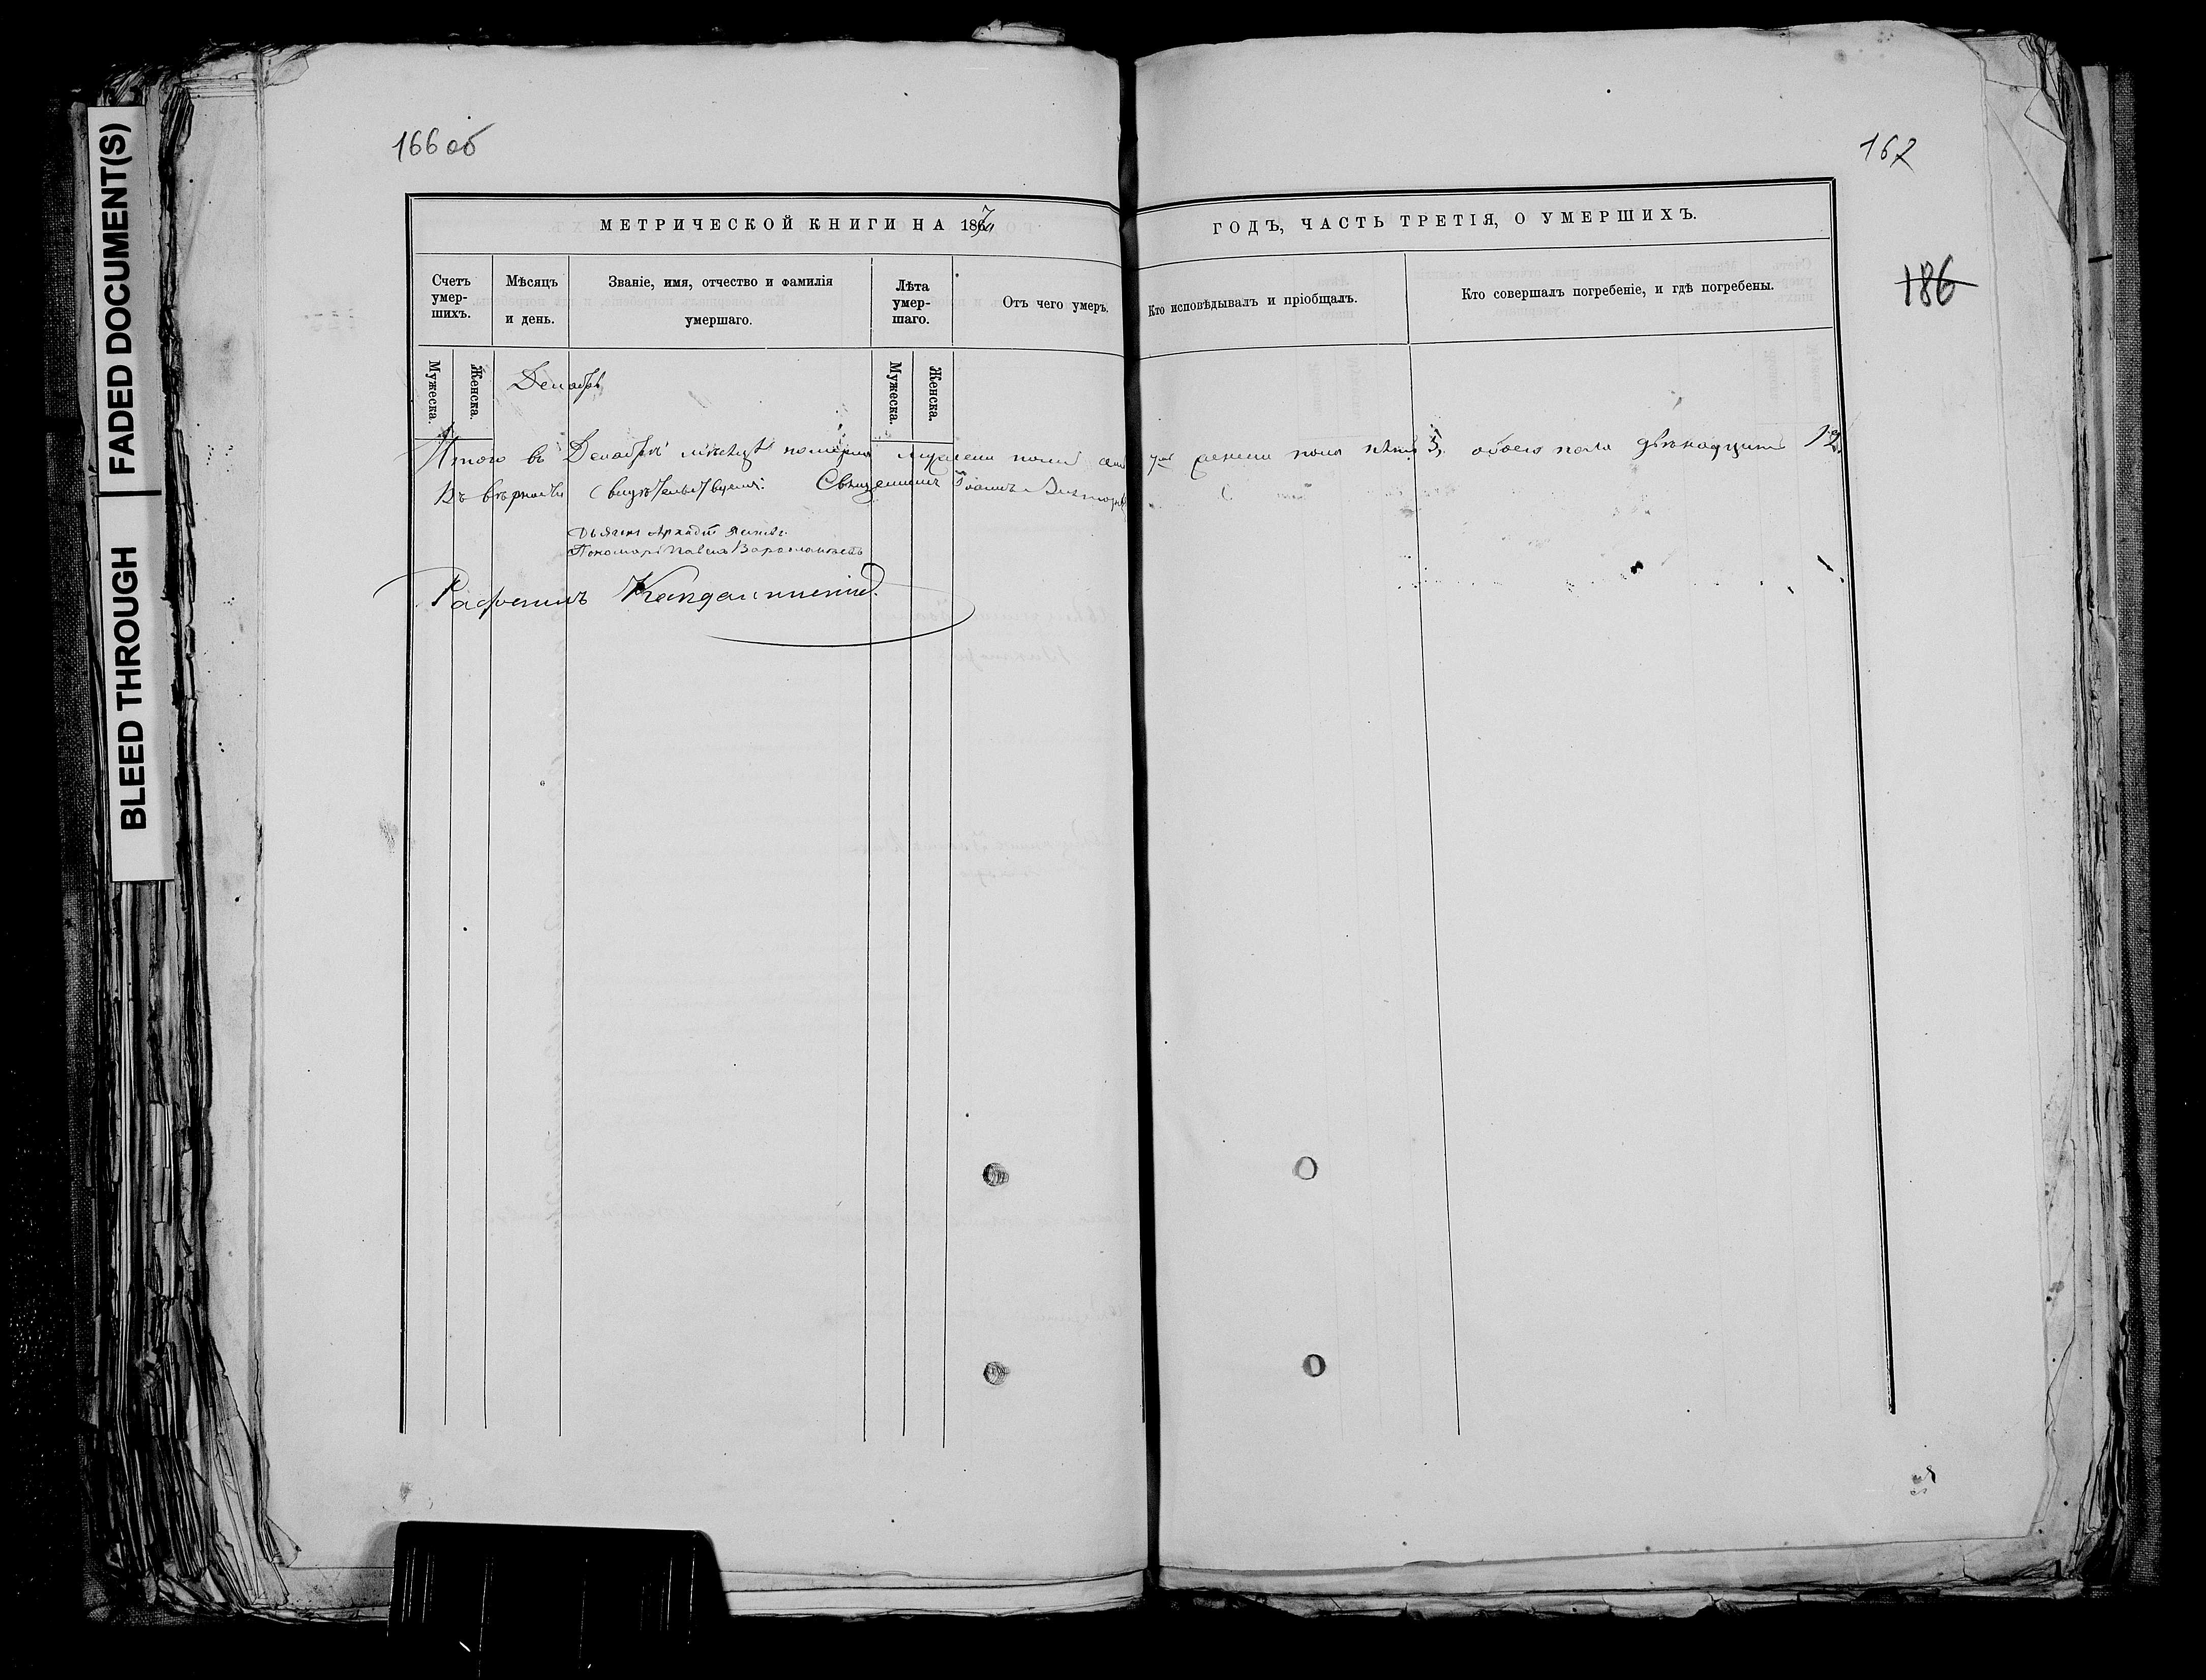 FADED DOCUMENT(S)
BLEED THROUGH
166 об
167
186
МЕТРИЧЕСКОЙ КНИГИ НА 1867
ГОДЪ, ЧАСТЬ ТРЕТІЯ, О УМЕРШИХЪ.
Счетъ умер-шихъ.
Мѣсяцъ и день.
Званіе, имя, отчество и фамилія умершаго.
Лѣта умер-шаго.
Отъ чего умеръ.
Кто исповѣдывалъ и пріобщалъ.
Кто совершалъ погребеніе, и гдѣ погребены.
Мужеска.
Женска.
Мужеска.
Женска.
Декабрь
Итого въ Декабрѣ мѣсяцѣ померло мужеска пола семь 7 женска пола пять 5, обоего пола двѣнадцать 12.
Въ вѣрности свидѣтельствуемъ: Священникъ Іоаннъ
Дьячекъ Аркадій
Пономарь Павелъ